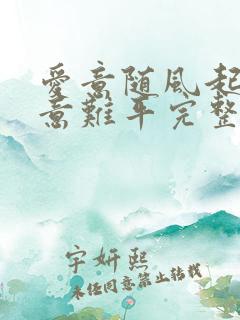 愛意随風起
意難平完整
宇妍熙
未经同意禁止转载